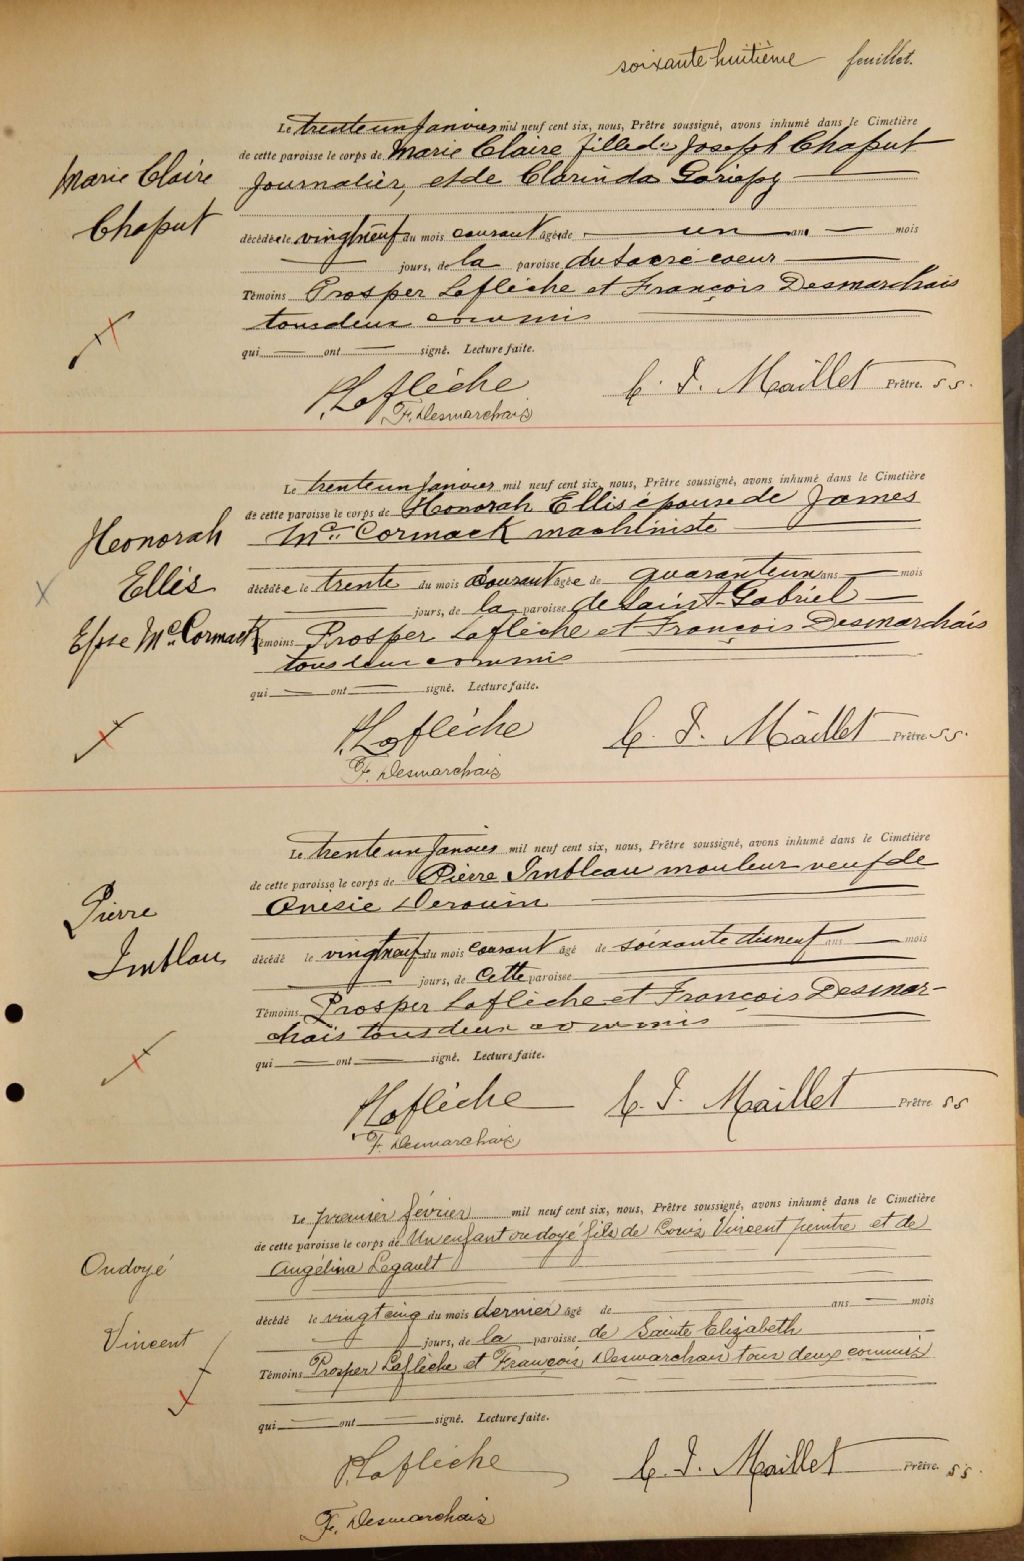 soixante huitième feuillet.
Le trente un Janvier mil neuf cent six, nous, Prêtre soussigné, avons inhumé dans le Cimetière
de cette paroisse le corps de Marie Claire fille de Joseph Chaput
Marie Claire
Journalier, et de Clarinda Gariepy
Chaput
décédée le vingt neuf du mois courant âgée de un an mois
jours, de la paroisse du Sacré coeur
Témoins Prosper Laflèche et François Desmarchais
tous deux commis
qui ont signé. Lecture faite.
P. Laflèche C. J. Maillet Prêtre. S S.
F. Desmarchais
Le trente un Janvier mil neuf cent six, nous, Prêtre soussigné, avons inhumé dans le Cimetière
de cette paroisse le corps de Honorah Ellis épouse de James
Honorah
Mc Cormack machiniste
Ellis
décédée le trente du mois courant âgée de quarante un ans mois
jours, de la paroisse de Saint-Gabriel
Epse Mc Cormack
Témoins Prosper Laflèche et François Desmarchais
tous deux commis
qui ont signé. Lecture faite.
P. Laflèche C. J. Maillet Prêtre. S S.
F. Desmarchais
Le trente un Janvier mil neuf cent six, nous, Prêtre soussigné, avons inhumé dans le Cimetière
de cette paroisse le corps de Pierre Imbleau mouleur veuf de
Pierre
Onésie Derouin
Imblau
décédé le vingt neuf du mois courant âgé de soixante dix neuf ans mois
jours, de cette paroisse
Témoins Prosper Laflèche et François Desmar-
chais tous deux commis
qui ont signé. Lecture faite.
P. Laflèche C. J. Maillet Prêtre. S S
F. Desmarchais
Le premier février mil neuf cent six, nous, Prêtre soussigné, avons inhumé dans le Cimetière
de cette paroisse le corps de Un enfant ondoyé fils de Louis Vincent peintre et de
Ondoyé
Angélina Legault
décédé le vingt cinq du mois dernier âgé de ans mois
Vincent
jours, de la paroisse de Sainte Elizabeth
Témoins Prosper Laflèche et François Desmarchais tous deux commis
qui ont signé. Lecture faite.
P. Laflèche C. J. Maillet Prêtre. S S.
F. Desmarchais